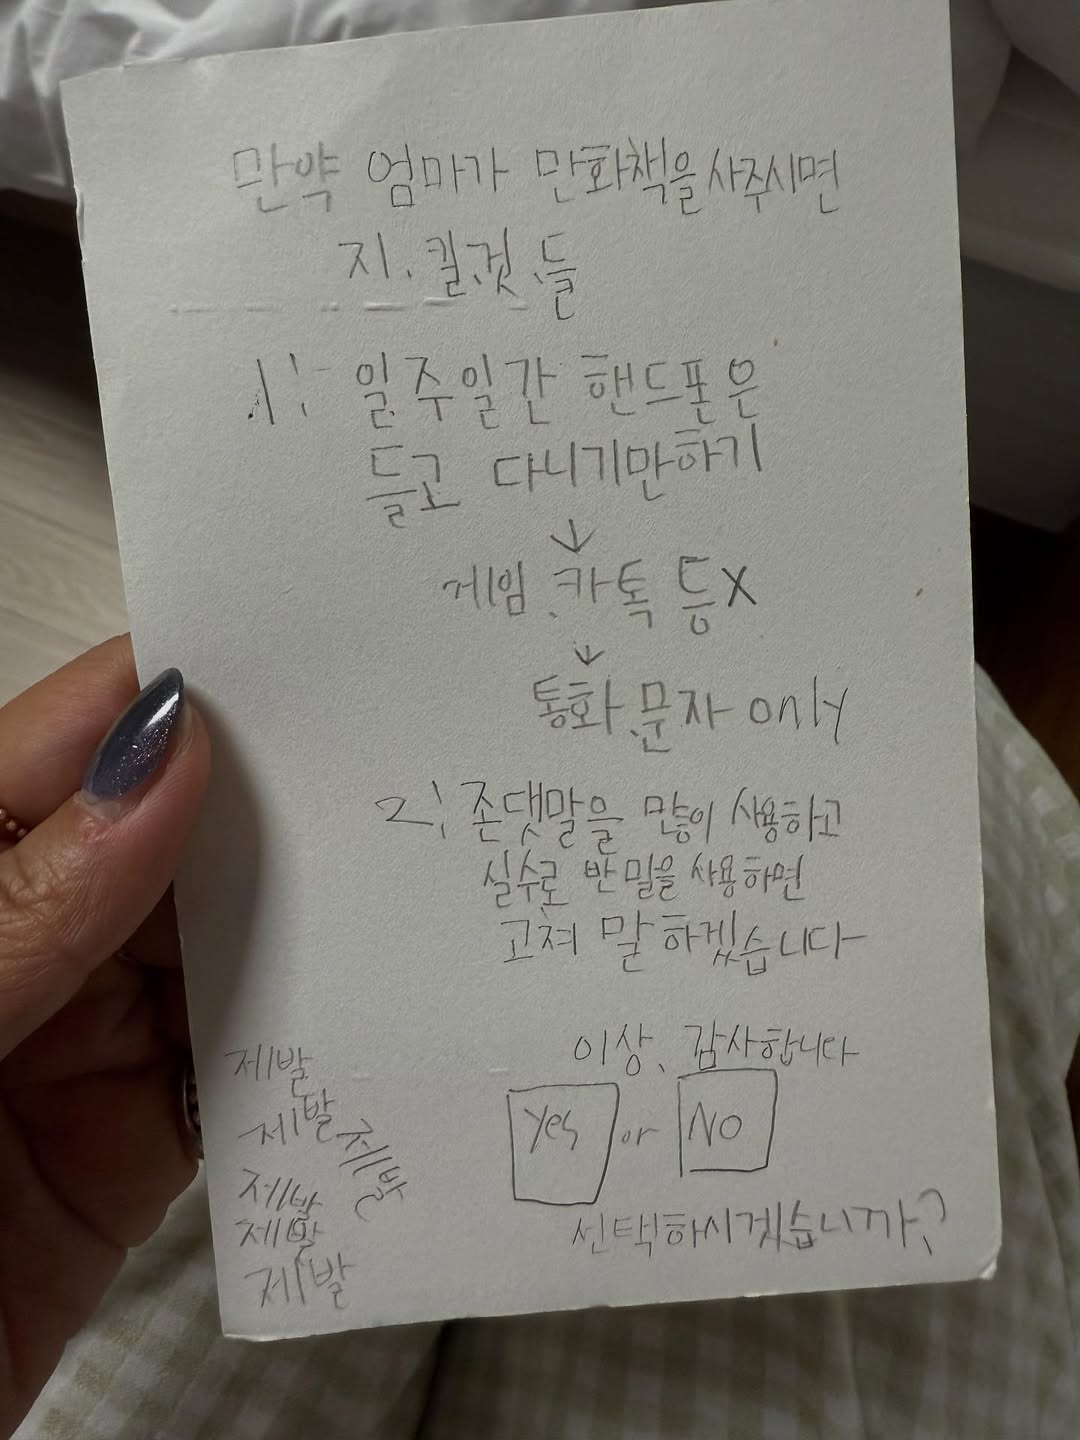 만약 엄마가 만화책을 사주시면
지.킬.것.들
1: 일주일간 핸드폰은
들고 다니기만하기
↓
게임.카톡 등X
↓
통화.문자 only
2: 존댓말을 많이 사용하고
실수로 반말을 사용하면
고쳐 말하겠습니다
이상, 감사합니다
Yes or NO
선택하시겠습니까?
제발
제발
제발
제발
제발
제발